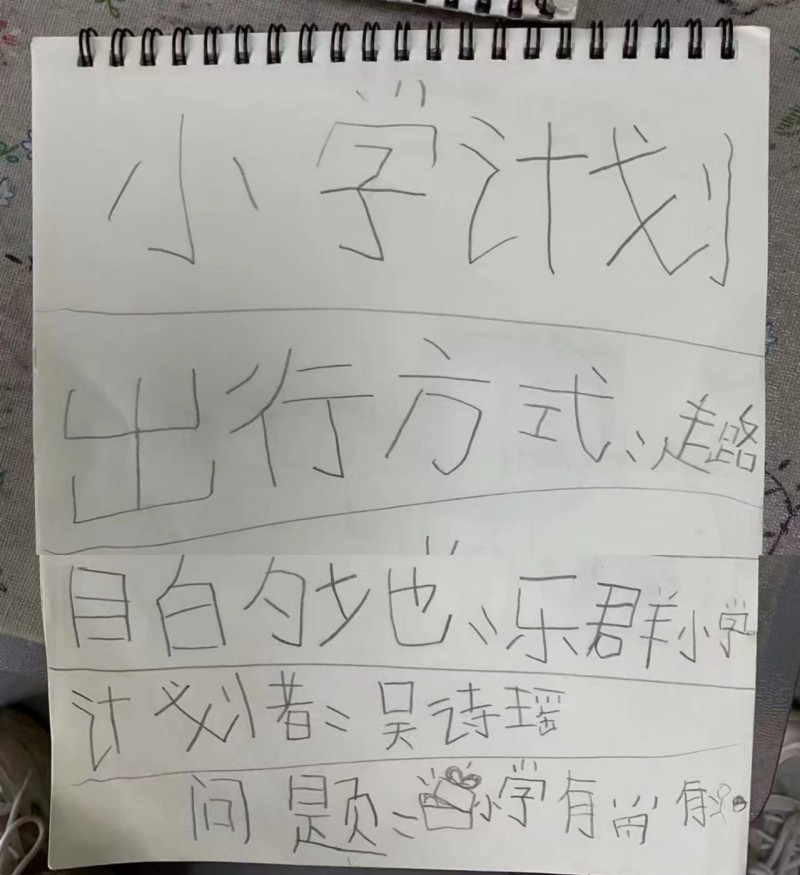 小学计划
出行方式：走路
目白勺地：乐群小学
计划者：吴诗瑶
问题：小学有 有